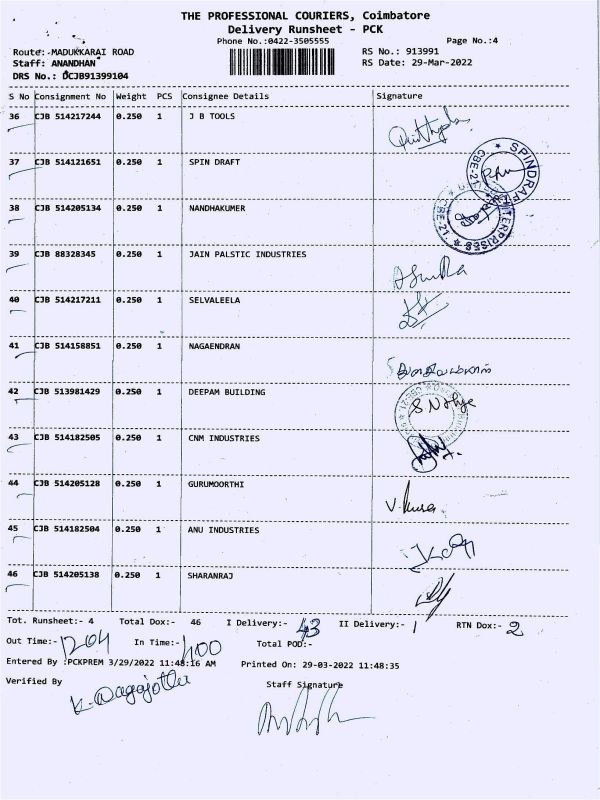 THE PROFESSIONAL COURIERS, Coimbatore
Delivery Runsheet - PCK
Phone No.:0422-3505555 Page No.:4
Route:-MADUKKARAI ROAD RS No.: 913991
Staff: ANANDHAN RS Date: 29-Mar-2022
DRS No.: DCJB91399104
S No Consignment No Weight PCS Consignee Details Signature
36 CJB 514217244 0.250 1 J B TOOLS
37 CJB 514121651 0.250 1 SPIN DRAFT
SPINDRAFT CBE-21
38 CJB 514205134 0.250 1 NANDHAKUMER
39 CJB 88328345 0.250 1 JAIN PALSTIC INDUSTRIES
40 CJB 514217211 0.250 1 SELVALEELA
41 CJB 514158851 0.250 1 NAGAENDRAN
42 CJB 513981429 0.250 1 DEEPAM BUILDING
43 CJB 514182505 0.250 1 CNM INDUSTRIES
44 CJB 514205128 0.250 1 GURUMOORTHI
45 CJB 514182504 0.250 1 ANU INDUSTRIES
46 CJB 514205138 0.250 1 SHARANRAJ
Tot. Runsheet:- 4 Total Dox:- 46 I Delivery:- 43 II Delivery:- 1 RTN Dox:- 2
Out Time:- 1204 In Time:- 1400 Total POD:-
Entered By :PCKPREM 3/29/2022 11:48:16 AM Printed On: 29-03-2022 11:48:35
Verified By Staff Signature